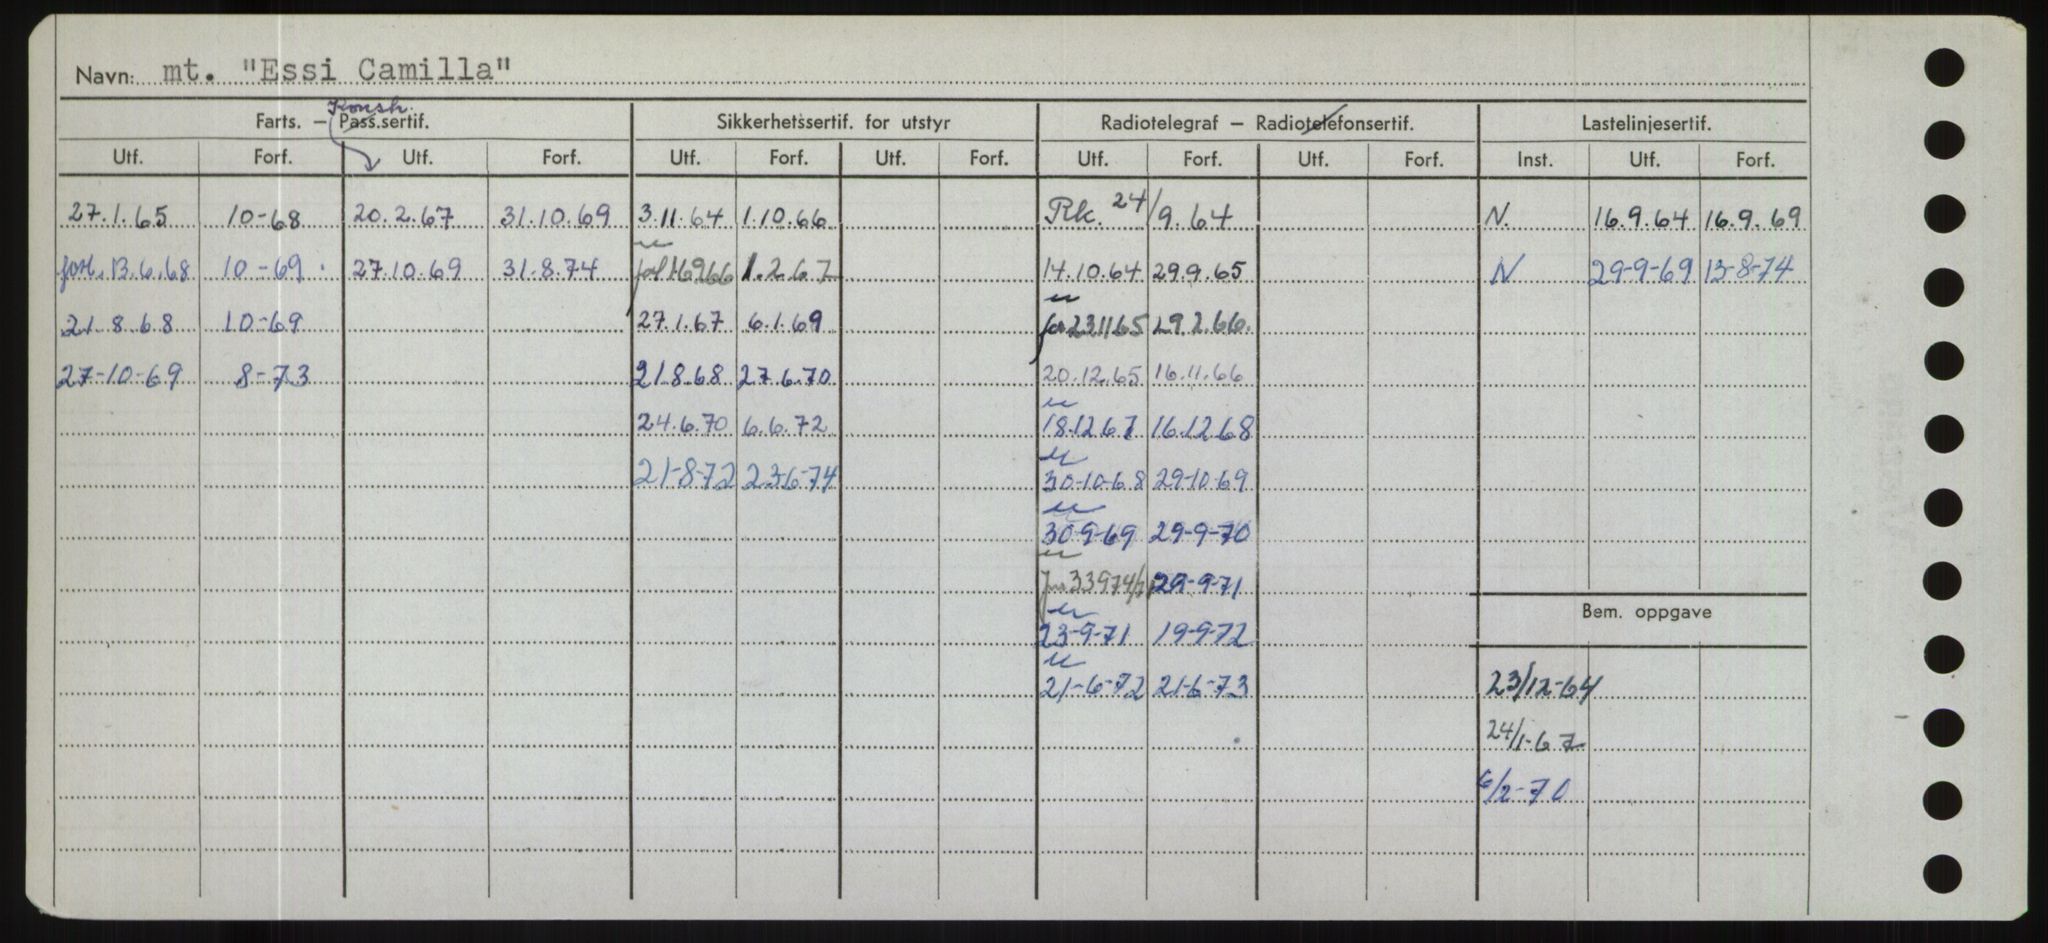 Navn: mt. "Essi Camilla"
Konstr.
Farts. – Pass.sertif. Sikkerhetssertif. for utstyr Radiotelegraf – Radiotelefonsertif. Lastelinjesertif.
Utf. Forf. Utf. Forf. Utf. Forf. Utf. Forf. Utf. Forf. Utf. Forf. Inst. Utf. Forf.
27.1.65 10-68 20.2.67 31.10.69 3.11.64 1.10.66 Rk. 24/9.64 N. 16.9.64 16.9.69
forl. 13.6.68 10-69 27.10.69 31.8.74 1.2.67 14.10.64 29.9.65 N 29-9-69 13-8-74
21.8.68 10-69 27.1.67 6.1.69 231165 29.2.66.
27-10-69 8-73 21.8.68 27.6.70 20.12.65 16.11.66
24.6.70 6.6.72 18.12.67 16.12.68
21-8-72 23-6-74 30-10-68 29-10-69
30-9-69 29-9-70
29-9-71
Bem. oppgave
23-9-71 19-9-72
21-6-72 21-6-73 23/12-64
24/1-67
6/2-70